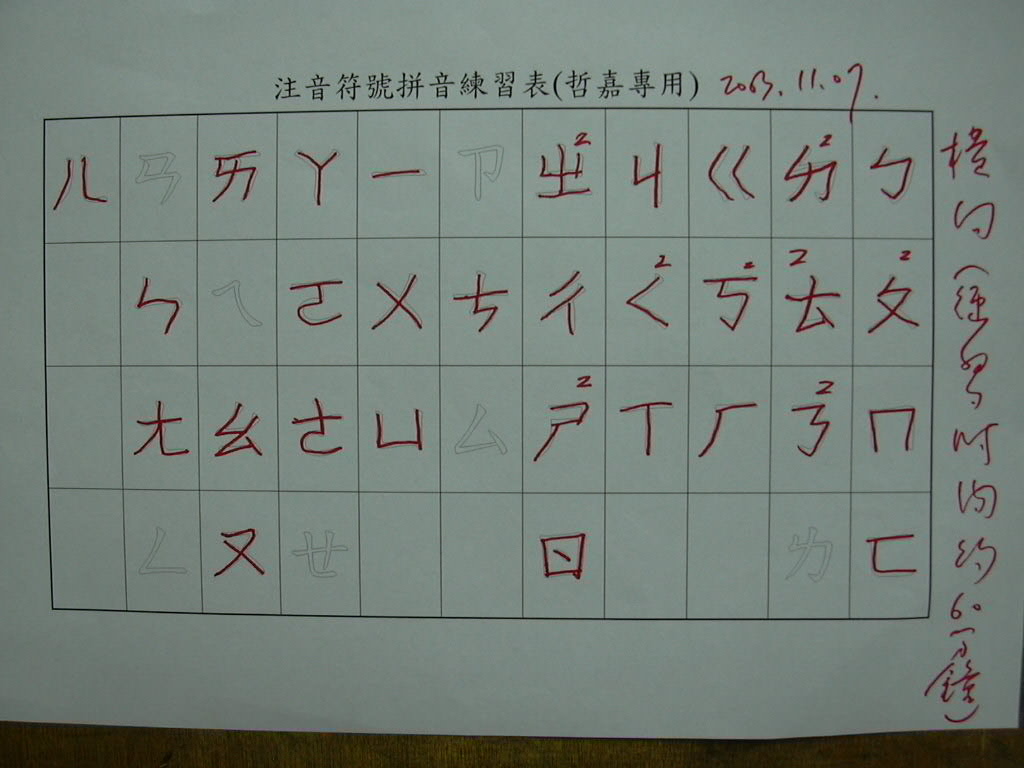 注音符號拼音練習表(哲嘉專用) 2003.11.07.
ㄦ ㄢ ㄞ ㄚ ㄧ ㄗ ㄓ2 ㄐ ㄍ ㄉ2 ㄅ
ㄣ ㄟ ㄛ ㄨ ㄘ ㄔ ㄑ2 ㄎ2 ㄊ2 ㄆ2
ㄤ ㄠ ㄜ ㄩ ㄙ ㄕ2 ㄒ ㄏ ㄋ2 ㄇ
ㄥ ㄡ ㄝ ㄖ ㄌ ㄈ
橫向(練習時間約60分鐘)